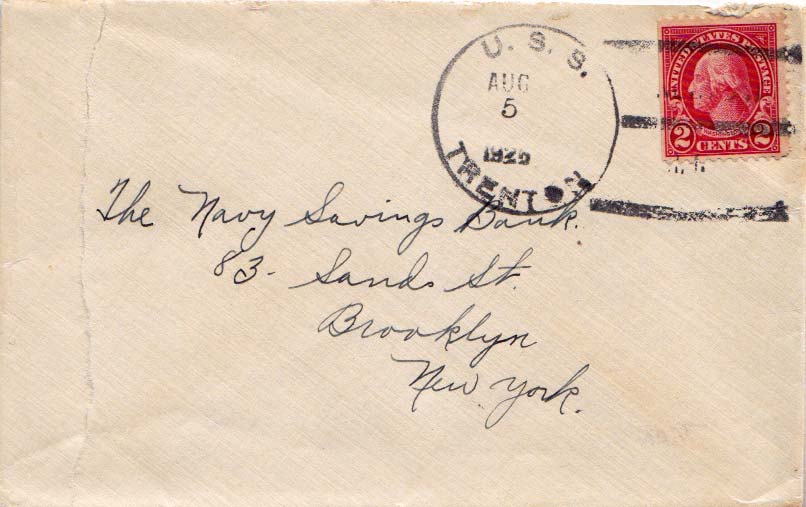 U. S. S.
AUG
5
1925
TRENTON
UNITED STATES POSTAGE
2 CENTS 2
The Navy Savings Bank.
83- Sands St.
Brooklyn
New York.